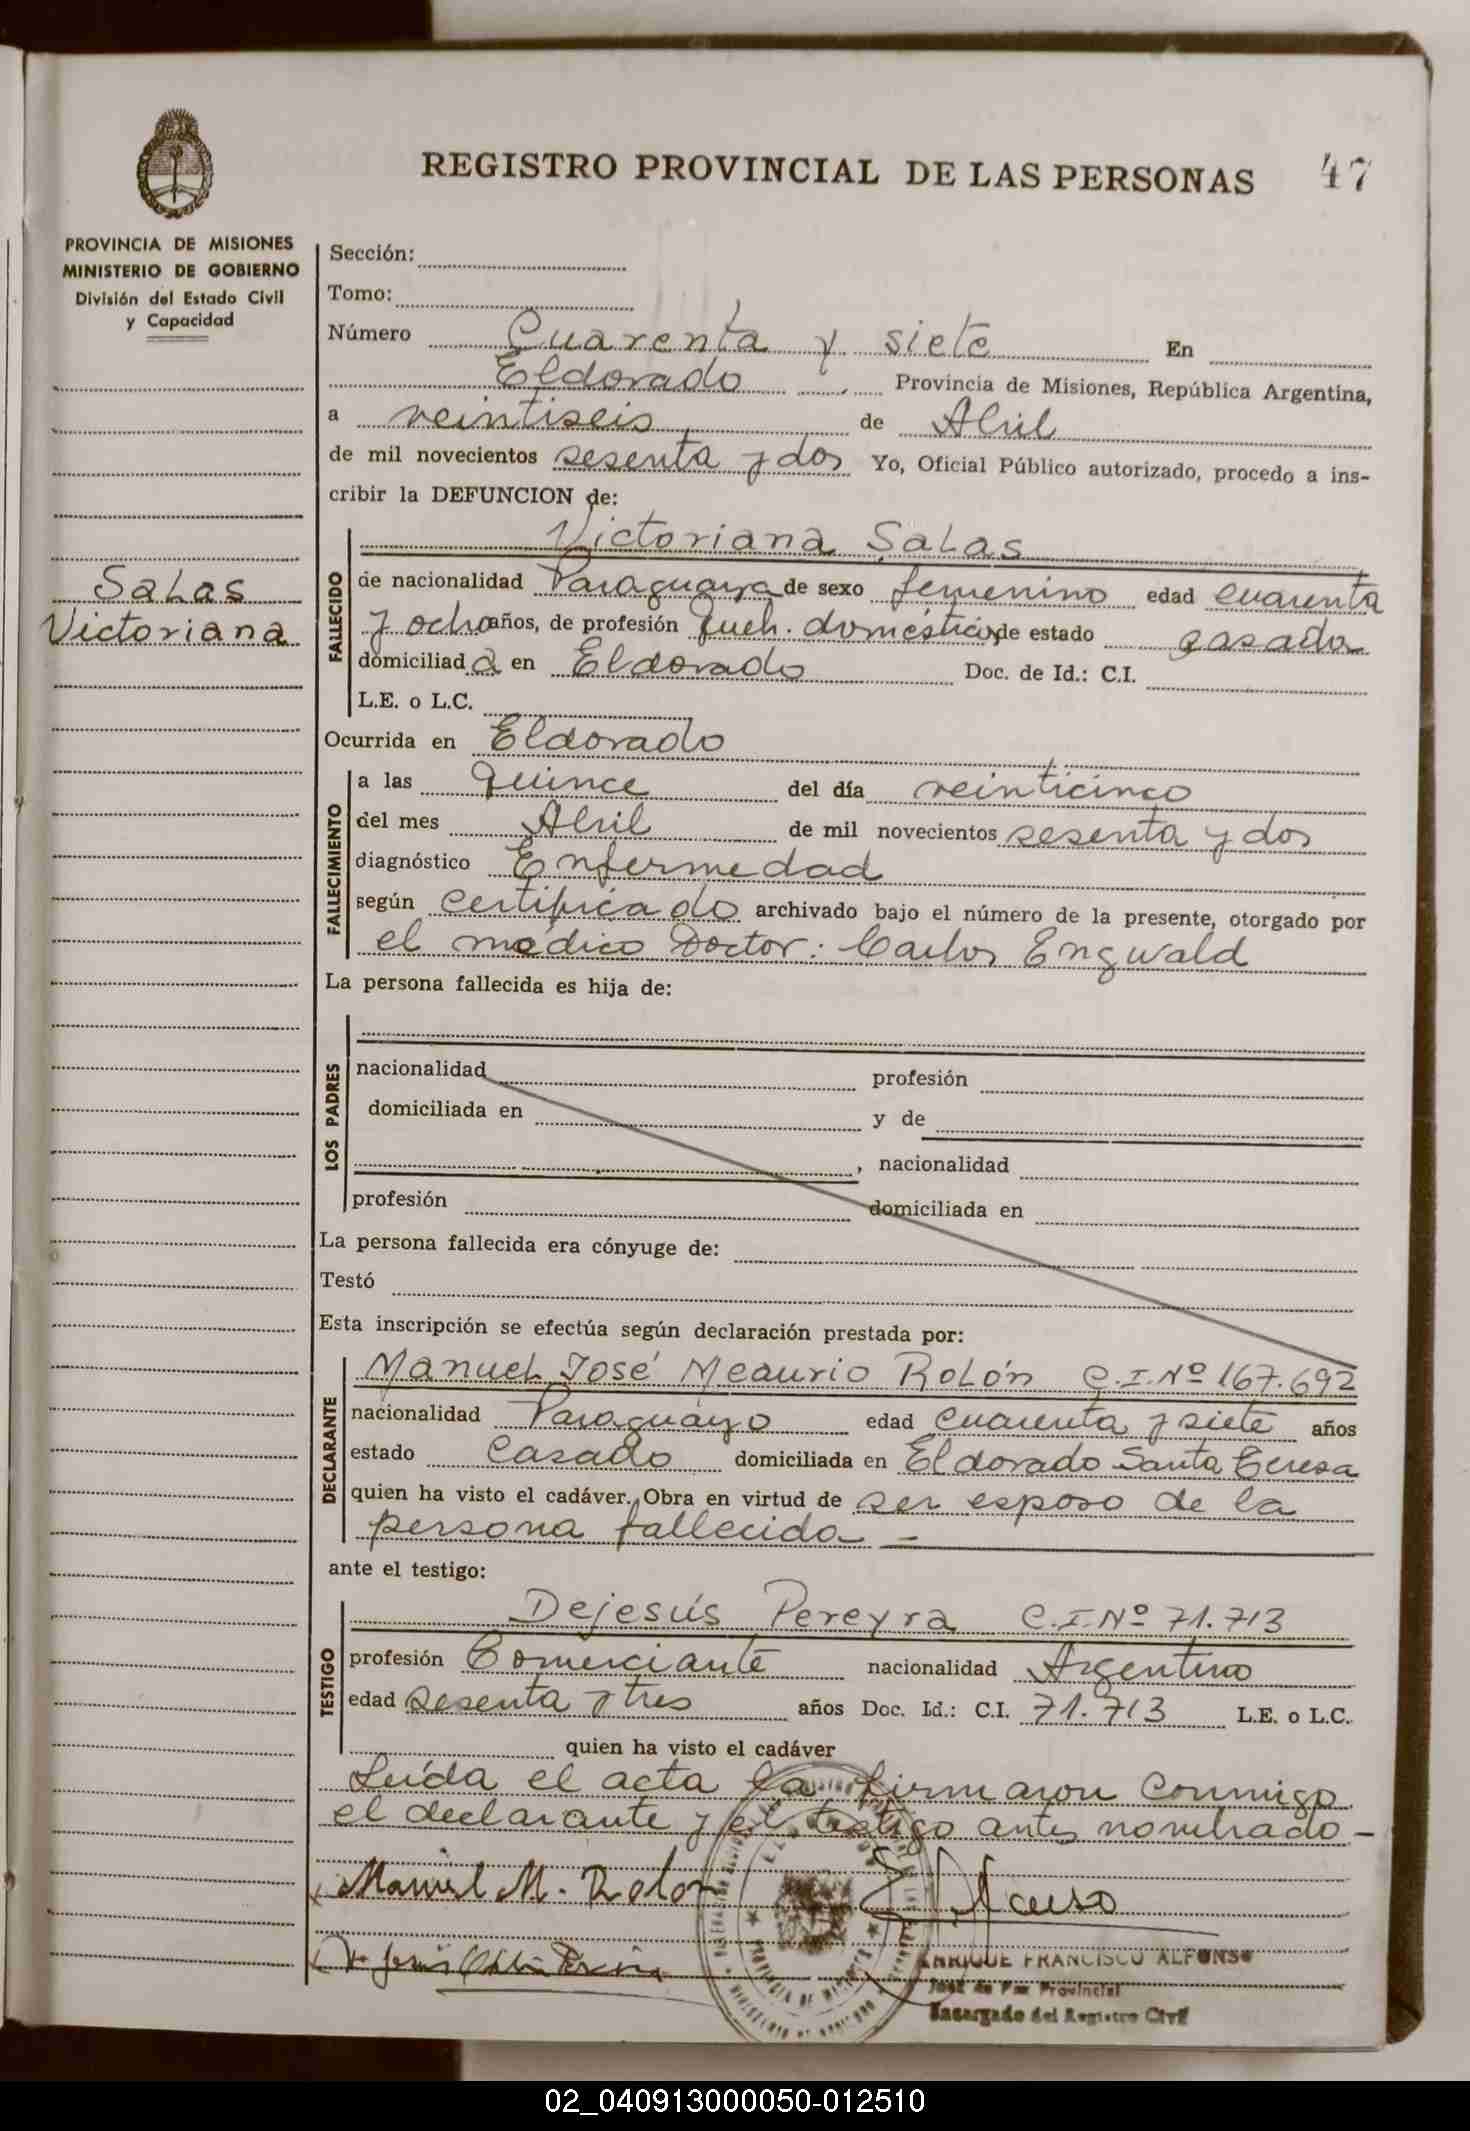 REGISTRO PROVINCIAL DE LAS PERSONAS
47
PROVINCIA DE MISIONES
MINISTERIO DE GOBIERNO
División del Estado Civil
y Capacidad
Salas
Victoriana
Sección:
Tomo:
Número Cuarenta y siete En
Eldorado Provincia de Misiones, República Argentina,
a veintiseis de Abril
de mil novecientos sesenta y dos Yo, Oficial Público autorizado, procedo a ins-
cribir la DEFUNCION de:
FALLECIDO
Victoriana Salas
de nacionalidad Paraguaya de sexo femenino edad cuarenta
y ocho años, de profesión Queh. domésticos de estado casada
domiciliada en Eldorado Doc. de Id.: C.I.
L.E. o L.C.
Ocurrida en Eldorado
FALLECIMIENTO
a las quince del día veinticinco
del mes Abril de mil novecientos sesenta y dos
diagnóstico Enfermedad
según certificado archivado bajo el número de la presente, otorgado por
el médico Doctor: Carlos Engwald
La persona fallecida es hija de:
LOS PADRES
nacionalidad profesión
domiciliada en y de
, nacionalidad
profesión domiciliada en
La persona fallecida era cónyuge de:
Testó
Esta inscripción se efectúa según declaración prestada por:
DECLARANTE
Manuel José Meaurio Rolón C.I.Nº 167.692
nacionalidad Paraguayo edad cuarenta y siete años
estado Casado domiciliada en Eldorado Santa Teresa
quien ha visto el cadáver. Obra en virtud de ser esposo de la
persona fallecida -
ante el testigo:
TESTIGO
Dejesús Pereyra C.I.Nº 71.713
profesión Comerciante nacionalidad Argentino
edad sesenta y tres años Doc. Id.: C.I. 71.713 L.E. o L.C.
quien ha visto el cadáver
Leída el acta la firmaron conmigo
el declarante y el testigo antes nombrado -
Manuel M. Rolon
PROVINCIA DE MISIONES
ENRIQUE FRANCISCO ALFONSO
Juez de Paz Provincial
Encargado del Registro Civil
02_040913000050-012510